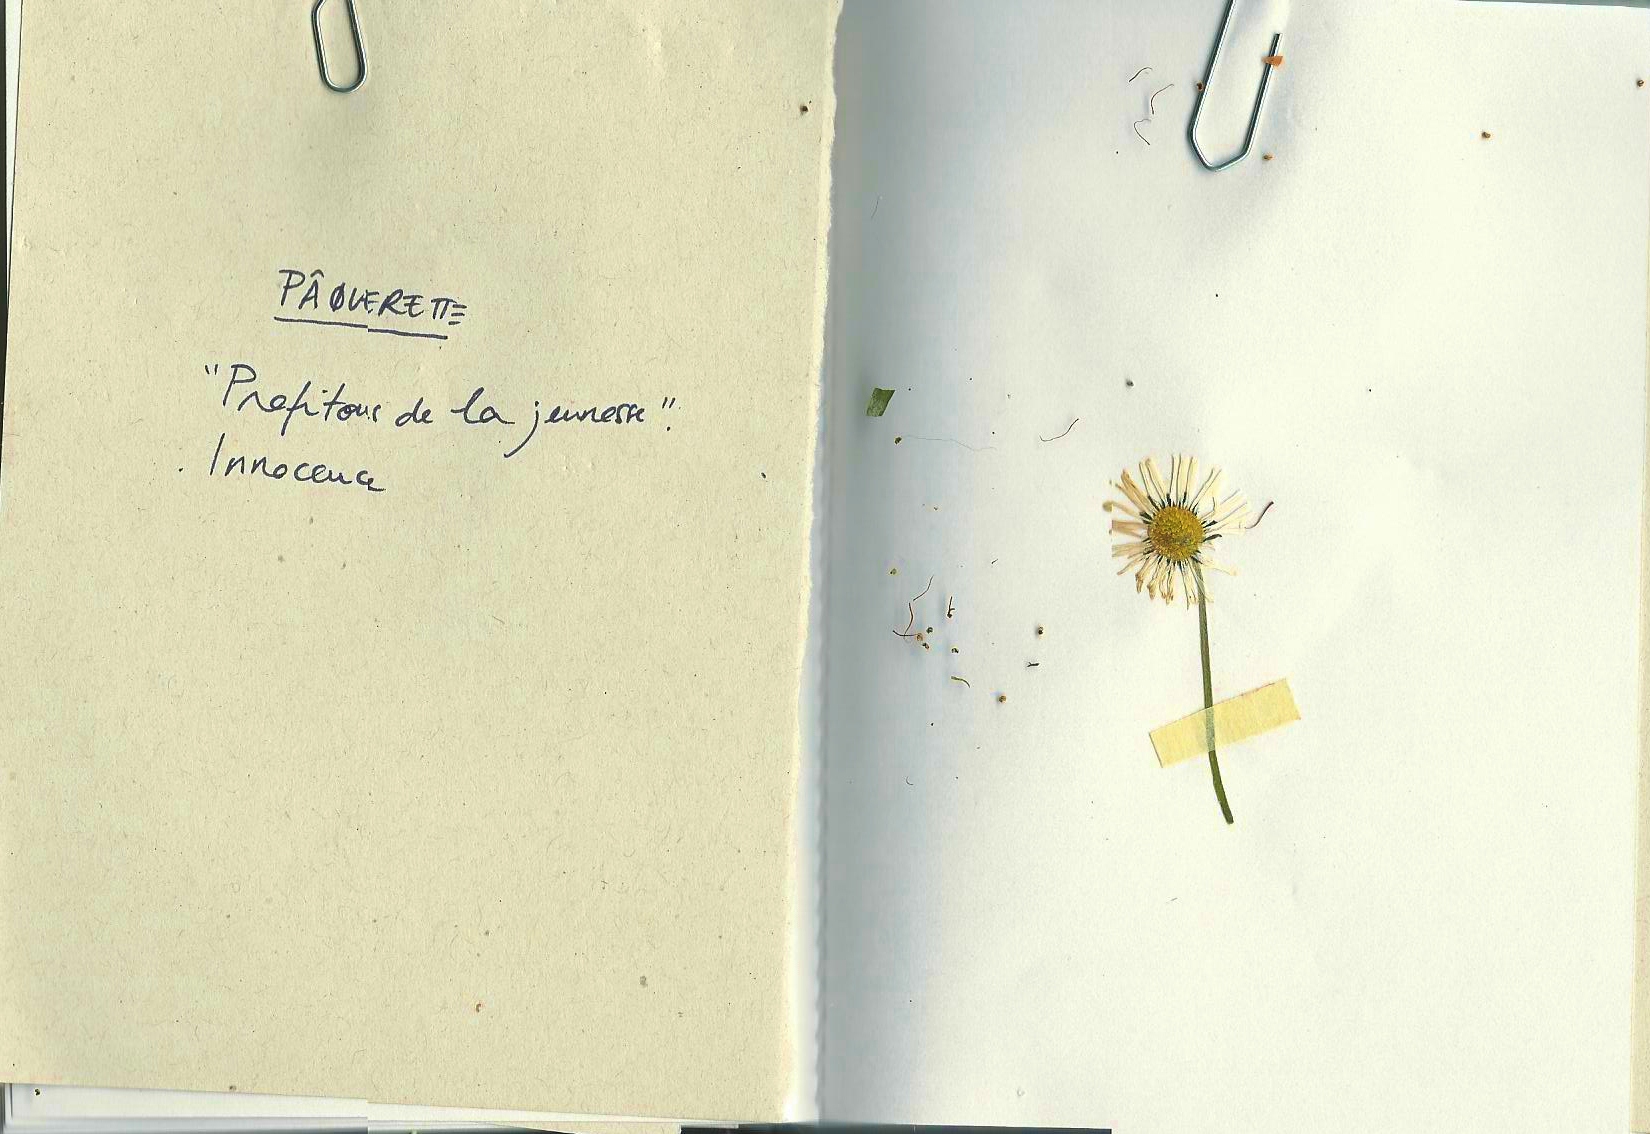 PÂQUERETTE
"Profitons de la jeunesse".
. Innocence